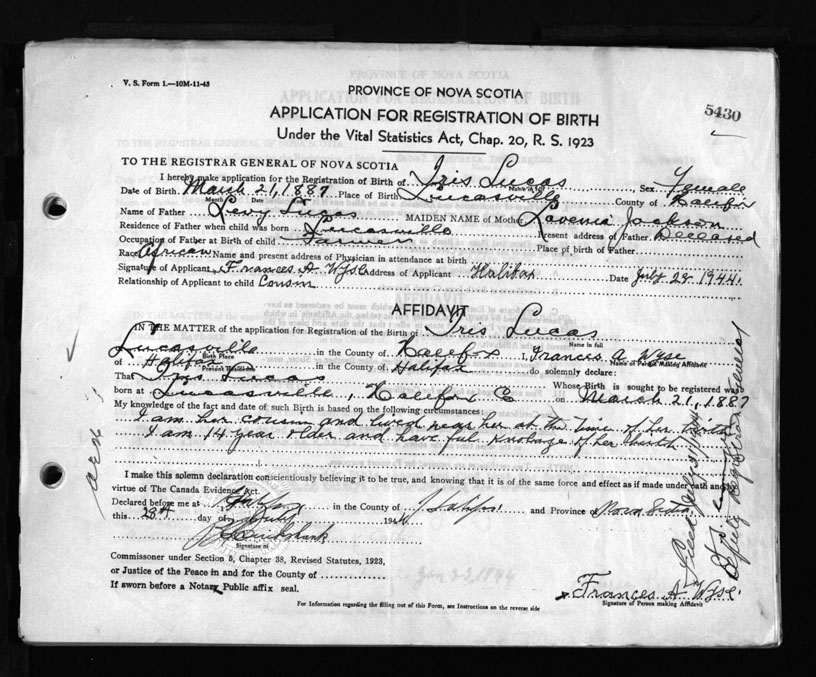 V. S. Form 1.—10M-11-43
PROVINCE OF NOVA SCOTIA
5430
APPLICATION FOR REGISTRATION OF BIRTH
Under the Vital Statistics Act, Chap. 20, R. S. 1923
TO THE REGISTRAR GENERAL OF NOVA SCOTIA
I hereby make application for the Registration of Birth of Iris Lucas Sex Female
Name in full
Date of Birth March 21, 1887 Place of Birth Lucasville County of Halifax
Month Date
Name of Father Levy Lucas MAIDEN NAME of Mother Lavenia Jackson
Residence of Father when child was born Lucasville Present address of Father Deceased
Occupation of Father at Birth of child Farmer Place of birth of Father
Race African Name and present address of Physician in attendance at birth
Signature of Applicant Frances A Wyse Address of Applicant Halifax Date July 28 1944.
Relationship of Applicant to child Cousin
AFFIDAVIT
IN THE MATTER of the application for Registration of the Birth of Iris Lucas
Name in full
Lucasville in the County of Halifax I, Frances A Wyse
Birth Place Name of Person Making Affidavit
of Halifax in the County of Halifax do solemnly declare:
Present Residence
That Iris Lucas Whose Birth is sought to be registered was
born at Lucasville, Halifax C on March 21, 1887
My knowledge of the fact and date of such Birth is based on the following circumstances:
I am her cousin and lived near her at the time of her birth
I am 14 year older and have ful knolage of her birth
I make this solemn declaration conscientiously believing it to be true, and knowing that it is of the same force and effect as if made under oath and by
virtue of The Canada Evidence Act.
Declared before me at Halifax in the County of Halifax and Province of Nova Scotia
this 28 day of July 1944
Signature of
Commissioner under Section 5, Chapter 38, Revised Statutes, 1923,
or Justice of the Peace in and for the County of
If sworn before a Notary Public affix seal.
x Frances A Wyse
Signature of Person making Affidavit
For Information regarding the filling out of this Form, see Instructions on the reverse side
Deputy Registrar General